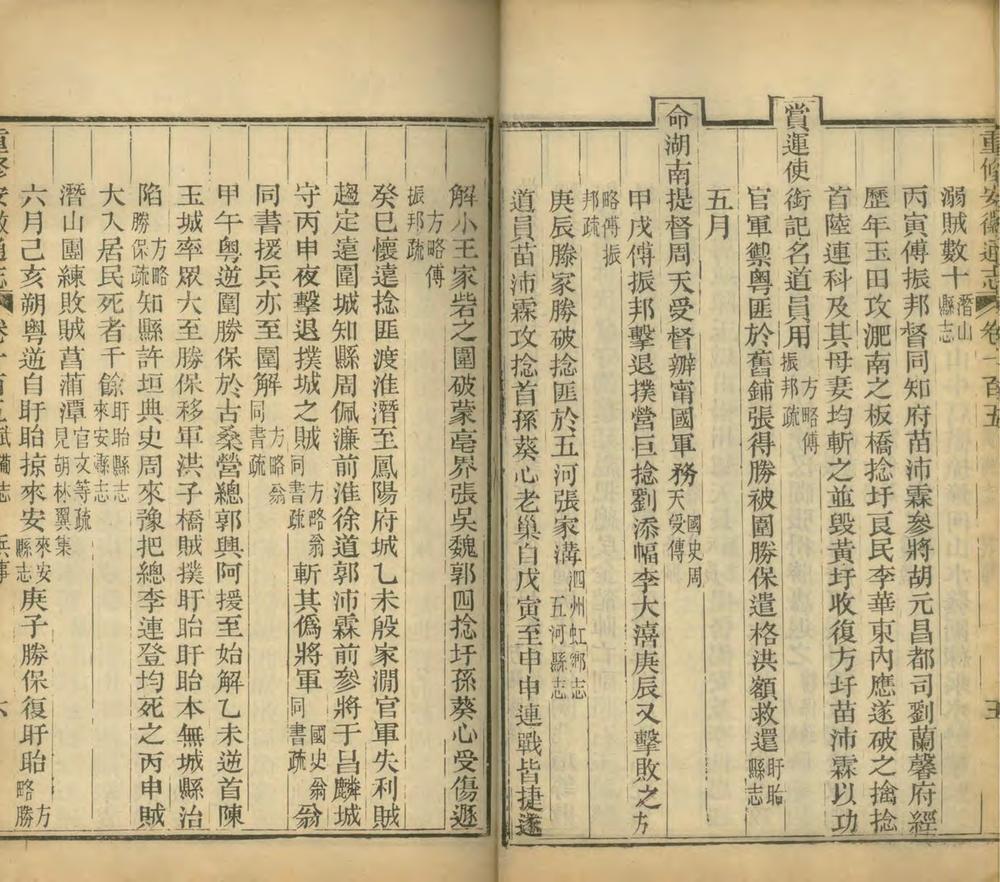 重修安徽通志 卷一百五 五
溺賊數十潛山縣志
丙寅傅振邦督同知府苗沛霖參將胡元昌都司劉蘭馨府經
歷年玉田攻淝南之板橋捻圩良民李華東內應遂破之擒捻
首陸連科及其母妻均斬之並毀黃圩收復方圩苗沛霖以功
賞運使銜記名道員用方略傅振邦疏
官軍禦粵匪於舊鋪張得勝被圍勝保遣格洪額救還盱眙縣志
五月
命湖南提督周天受督辦甯國軍務國史周天受傳
甲戌傅振邦擊退撲營巨捻劉添幅李大濆庚辰又擊敗之方
略傅振邦疏
庚辰滕家勝破捻匪於五河張家溝泗州虹鄉志五河縣志
道員苗沛霖攻捻首孫葵心老巢自戊寅至申申連戰皆捷遂
解小王家砦之圍破蒙亳界張吳魏郭四捻圩孫葵心受傷遯
方略傅振邦疏
癸巳懷遠捻匪渡淮潛至鳳陽府城乙未殷家澗官軍失利賊
趨定遠圍城知縣周佩濂前淮徐道郭沛霖前參將于昌麟城
守丙申夜擊退撲城之賊方略翁同書疏斬其僞將軍國史翁同書疏翁
同書援兵亦至圍解方略翁同書疏
甲午粵逆圍勝保於古桑營總郭興阿援至始解乙未逆首陳
玉城率眾大至勝保移軍洪子橋賊撲盱眙盱眙本無城縣治
陷方略勝保疏知縣許垣典史周來豫把總李連登均死之丙申賊
大入居民死者千餘盱眙縣志來安縣志
潛山團練敗賊菖蒲潭官文等疏見胡林翼集
六月己亥朔粵逆自盱眙掠來安來安縣志庚子勝保復盱眙方略勝
重修安徽通志 卷一百五 武備志 兵事 六